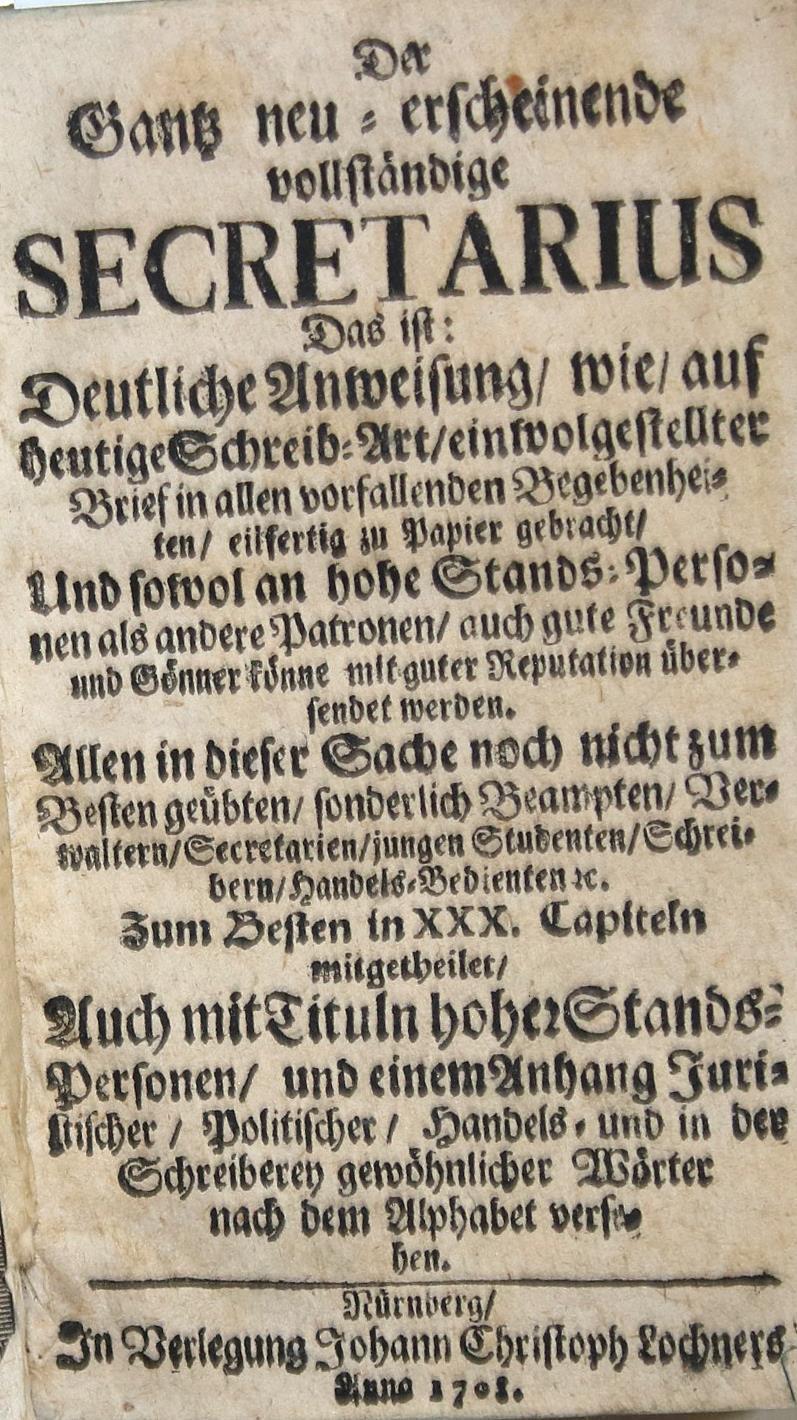 Der
Gantz neu-erscheinende
vollständige
SECRETARIUS
Das ist:
Deutliche Anweisung/ wie/ auf
heutige Schreib-Art/ ein wolgestellter
Brief in allen vorfallenden Begebenhei-
ten/ eilfertig zu Papier gebracht/
Und sowol an hohe Stands-Perso-
nen als andere Patronen/ auch gute Freunde
und Gönner könne mit guter Reputation über-
sendet werden.
Allen in dieser Sache noch nicht zum
Besten geübten/ sonderlich Beampten/ Ver-
waltern/ Secretarien/ jungen Studenten/ Schrei-
bern/ Handels-Bedienten ꝛc.
Zum Besten in XXX. Capiteln
mitgetheilet/
Auch mit Tituln hoher Stands-
Personen/ und einem Anhang Juri-
stischer/ Politischer/ Handels- und in der
Schreiberey gewöhnlicher Wörter
nach dem Alphabet verse-
hen.
Nürnberg/
In Verlegung Johann Christoph Lochners
Anno